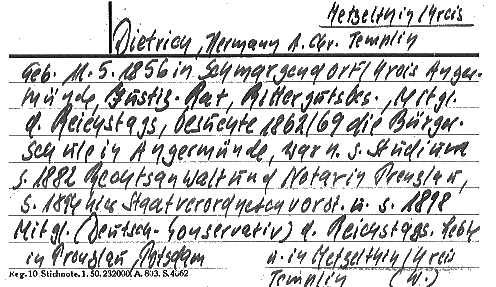 Metzelthin/Kreis
Dietrich, Hermann A. Chr. Templin
Geb. 11. 5. 1856 in Schmargendorf/Kreis Anger-
münde, Justiz-Rat, Rittergutsbes., Mitgl.
d. Reichstags, besuchte 1862/69 die Bürger-
schule in Angermünde, war n. s. Studium
s. 1882 Rechtsanwalt und Notar in Prenzlau,
s. 1894 hier Staatverordnetenvorst. u. s. 1898
Mitgl. (Deutsch-Conservativ) d. Reichstags. lebte
in Prenzlau, Potsdam u. in Metzelthin/Kreis
Templin (W.)
Reg. 10 Stichnote. 1. 50. 232000. A. 803. S. 4062